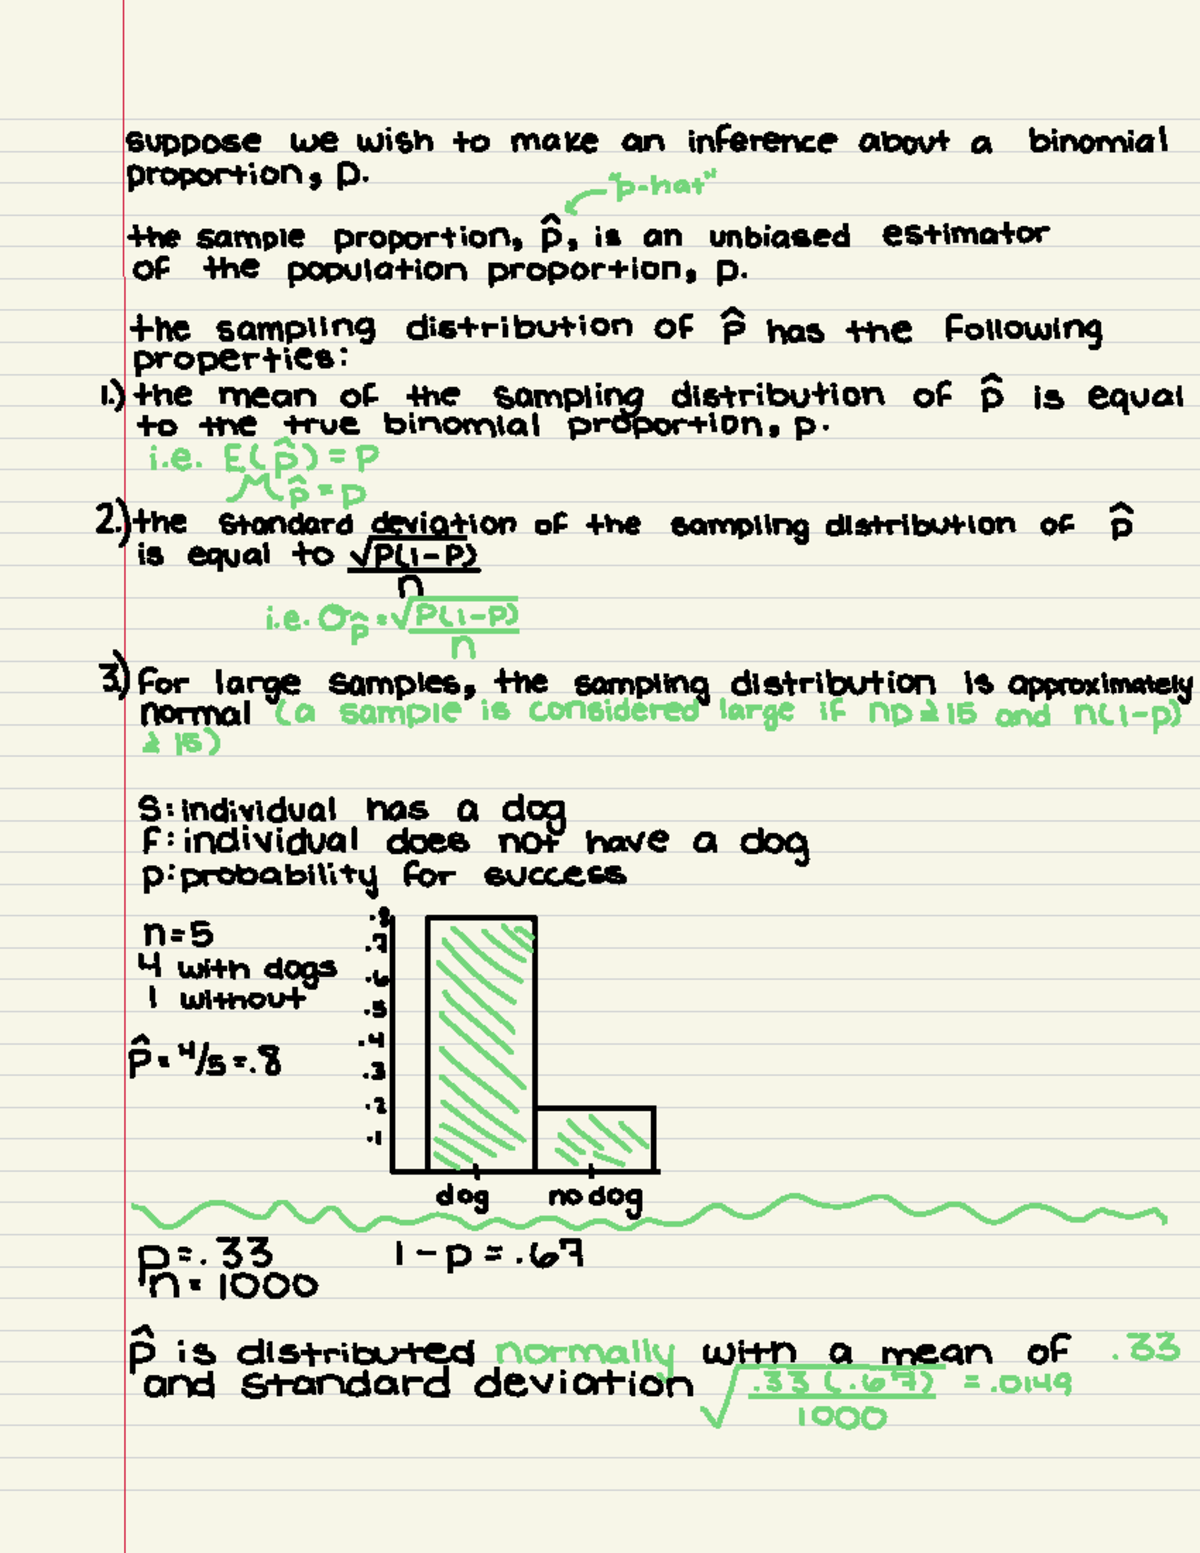 suppose we wish to make an inference about a binomial
proportion, p.
"p-hat"
the sample proportion, p̂, is an unbiased estimator
of the population proportion, p.
the sampling distribution of p̂ has the following
properties:
1.) the mean of the sampling distribution of p̂ is equal
to the true binomial proportion, p.
i.e. E(p̂) = p
μp̂ = p
2.) the standard deviation of the sampling distribution of p̂
is equal to √P(1-P)
n
i.e. σp̂ = √P(1-p)
n
3.) for large samples, the sampling distribution is approximately
normal (a sample is considered large if np ≥ 15 and n(1-p)
≥ 15)
S: individual has a dog
f: individual does not have a dog
p: probability for success
n=5
4 with dogs
1 without
p̂ = 4/5 = .8
.8
.7
.6
.5
.4
.3
.2
.1
dog no dog
p = .33 1 - p = .67
n = 1000
p̂ is distributed normally with a mean of .33
and standard deviation √.33 (.67) = .0149
1000